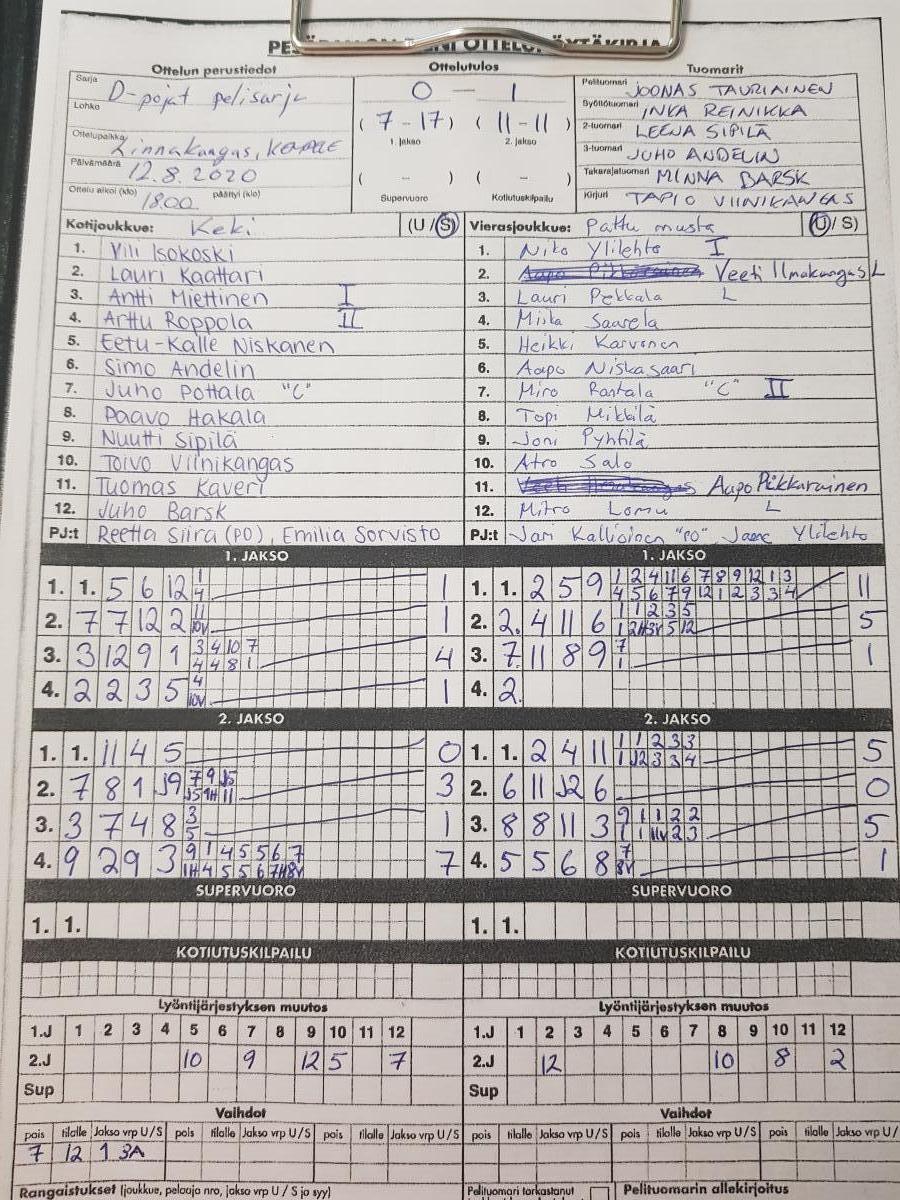 Ottelun perustiedot Ottelutulos Tuomarit
Sarja D-pojat pelisarja 0 — 1 Pelituomari JOONAS TAURIAINEN
Lohko Syöttötuomari INKA REINIKKA
Ottelupaikka Linnakangas, (7-17) (11-11) 2-tuomari LEENA SIPILÄ
1. jakso 2. jakso 3-tuomari JUHO ANDELIN
Päivämäärä 12.8.2020 ( - ) ( - ) Takarajatuomari MINNA BARSK
Ottelu alkoi (klo) 1800 päättyi (klo) Supervuoro Kotiutuskilpailu Kirjuri TAPIO VIINIKANGAS
Kotijoukkue: Keki (U/S) Vierasjoukkue: Pattu musta (U/S)
1. Vili Isokoski 1. Niko Ylilehto I
2. Lauri Kaattari 2. Veeti Ilmakangas L
3. Antti Miettinen I 3. Lauri Pekkala L
4. Arttu Roppola II 4. Miska Saarela
5. Eetu-Kalle Niskanen 5. Heikki Karvonen
6. Simo Andelin 6. Aapo Niskasaari
7. Juho Pottala "C" 7. Miro Rantala "C" II
8. Paavo Hakala 8. Topi Mikkilä
9. Nuutti Sipilä 9. Joni Pyhtilä
10. Toivo Viinikangas 10. Atro Salo
11. Tuomas Kaveri 11. Aapo Pikkarainen
12. Juho Barsk 12. Mitro Lomu L
PJ:t Reetta Siira (PO), Emilia Sorvisto PJ:t Jari Kallioinen "PO" Janne Ylilehto
1. JAKSO 1. JAKSO
1. 1. 5 6 12 1 4 1 1. 1. 2 5 9 1 2 4 11 6 7 8 9 12 1 3 11
4 5 6 7 9 12 1 2 3 3 4
2. 7 7 12 2 11 10V 1 2. 2. 4 11 6 1 1 2 3 5 5
1 2H 3V 5 12
3. 3 12 9 1 3 4 10 7 4 3. 7. 11 8 9 7 1 1
4 4 8 1
4. 2 2 3 5 4 10V 1 4. 2.
2. JAKSO 2. JAKSO
1. 1. 11 4 5 0 1. 1. 2 4 11 1 1 2 3 3 5
1 J2 3 3 4
2. 7 8 1 J9 7 9 J5 3 2. 6 11 J2 6 0
J5 9H 11
3. 3 7 4 8 3 5 1 3. 8 8 11 3 9 1 1 2 2 5
1 1 11V 2 3
4. 9 2 9 3 9 1 4 5 5 6 7 7 4. 5 5 6 8 7 8V 1
1H 4 5 5 6 7H 8V
SUPERVUORO SUPERVUORO
1. 1. 1. 1.
KOTIUTUSKILPAILU KOTIUTUSKILPAILU
Lyöntijärjestyksen muutos Lyöntijärjestyksen muutos
1.J 1 2 3 4 5 6 7 8 9 10 11 12 1.J 1 2 3 4 5 6 7 8 9 10 11 12
2.J 10 9 12 5 7 2.J 12 10 8 2
Sup Sup
Vaihdot Vaihdot
pois tilalle Jakso vrp U/S pois tilalle Jakso vrp U/S pois tilalle Jakso vrp U/S pois tilalle Jakso vrp U/S pois tilalle Jakso vrp U/S pois tilalle Jakso vrp U/
7 12 1 3A
Rangaistukset (joukkue, pelaaja nro, jakso vrp U / S ja syy) Pelituomari tarkastanut Pelituomarin allekirjoitus